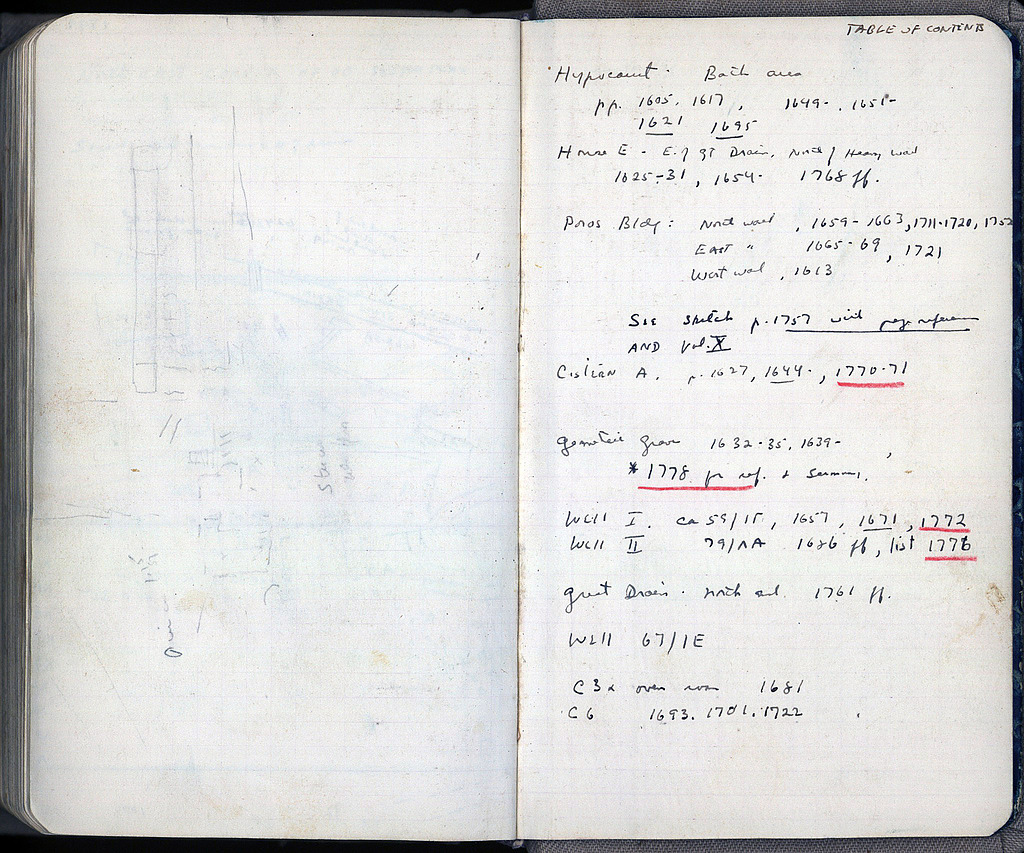 TABLE OF CONTENTS
Hypocaust. Bath area
pp. 1605, 1617, 1649-, 1651-
1621 1695
House E - E. of Gt Drain, North of Heavy wall
1625-31, 1654- 1768 ff.
Poros Bldg: North wall, 1659-1663, 1711-1720, 1752
EAST " 1665-69, 1721
West wall, 1613
SEE sketch p. 1757 with page reference
AND Vol. X
Cistern A. p. 1627, 1644-, 1770-71
Geometric Grave 1632-35, 1639-,
* 1778 for ref. & summ.
Well I. ca 59/IE, 1657, 1671, 1772
Well II 79/ΛΑ 1686 ff, list 1776
Great Drain. North end. 1761 ff.
Well 67/IE
C3x oven 1681
C6 1693. 1701. 1722